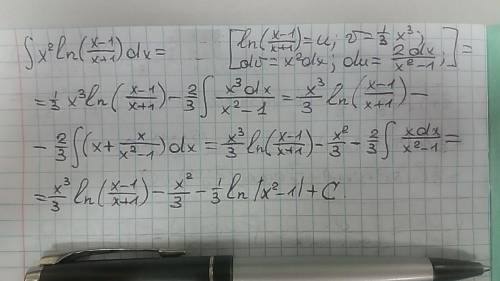 ∫x²ln(x-1/x+1)dx= [ln(x-1/x+1)=u; v=1/3 x³; dv=x²dx; du=2dx/x²-1;]=
=1/3 x³ln(x-1/x+1)-2/3∫x³dx/x²-1=x³/3 ln(x-1/x+1)-
-2/3∫(x+x/x²-1)dx=x³/3 ln(x-1/x+1)-x²/3-2/3∫xdx/x²-1=
=x³/3 ln(x-1/x+1)-x²/3-1/3 ln|x²-1|+C.